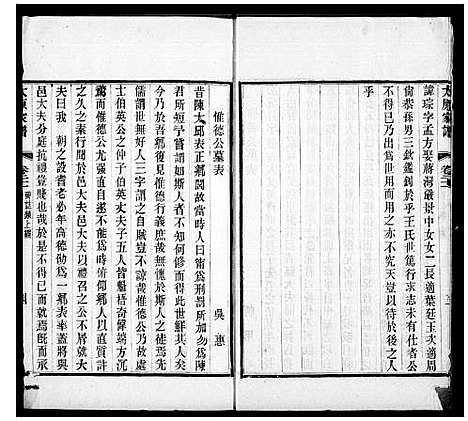 太原家譜 卷二十
諱琮字孟方娶蔣河嚴景中女女二長適葉廷玉次適周
備裝孫男三欽鑑鈞於乎王氏世篤行求志未有仕者公
不得已乃出用世而卒亦不究天意以有待於後之人
乎
惟德公墓表
吳惠
昔陳太邱表正鄉閭故當時人曰甯為刑罰所加勿為陳
君所短予嘗謂如斯人者不知何修而得此世鮮其人矣
今乃於吾鄉復見惟德公行義庶無愧於斯人之徒焉先
儒謂世無好人三字謂之自賊豈不諒哉惟德公乃故處
士伯英之仲子伯英丈夫子五人皆魁梧奇偉疇方沉
驚而惟德公尤強直自遂不能為時俯仰鄉人以直質許
之久之秦行於是邑大夫邑大夫以禮召之公不屑就大
夫曰我 朝之設耆老必年高德劭為一鄉表率蓋將與
邑大夫分庭抗禮豈賤也哉於是不得已而就焉既而承
太原家譜 卷二十 四